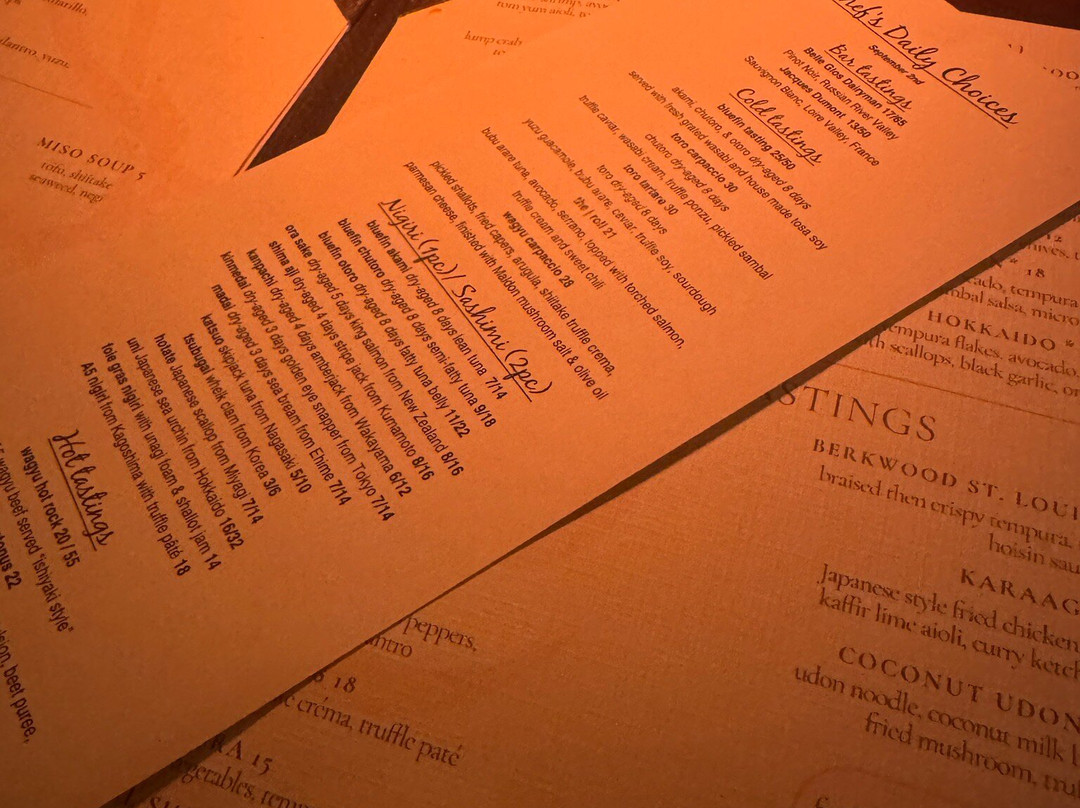 Chef's Daily Choices
September 2nd
Bar tastings
Belle Glos Dairyman 17/65
Pinot Noir, Russian River Valley
Jacques Dumont 13/50
Sauvignon Blanc, Loire Valley, France
Cold tastings
bluefin tasting 25/50
akami, chutoro, & otoro dry-aged 8 days
served with fresh grated wasabi and house made tosa soy
toro carpaccio 30
chutoro dry-aged 8 days
truffle caviar, wasabi cream, truffle ponzu, pickled sambal
toro tartare 30
toro dry-aged 8 days
yuzu guacamole, bubu arare, caviar, truffle soy, sourdough
the j roll 21
bubu arare tuna, avocado, serrano, topped with torched salmon,
truffle cream and sweet chili
wagyu carpaccio 28
pickled shallots, fried capers, arugula, shiitake truffle crema,
parmesan cheese, finished with Maldon mushroom salt & olive oil
Nigiri (1pc) // Sashimi (2pc)
bluefin akami dry-aged 8 days lean tuna 7/14
bluefin chutoro dry-aged 8 days semi-fatty tuna 9/18
bluefin otoro dry-aged 8 days fatty tuna belly 11/22
ora sake dry-aged 5 days king salmon from New Zealand 8/16
shima aji dry-aged 4 days stripe jack from Kunamoto 8/16
kanpachi dry-aged 4 days amberjack from Wakayama 6/12
kinmedai dry-aged 3 days golden eye snapper from Tokyo 7/14
madai dry-aged 3 days sea bream from Ehime 7/14
katsuo skipjack tuna from Nagasaki 5/10
tsubugai whelk clam from Korea 3/6
hotate Japanese scallop from Miyagi 7/14
uni Japanese sea urchin from Hokkaido 16/32
foie gras nigiri with unagi foam & shallot jam 14
A5 nigiri from Kagoshima with truffle pâté 18
Hot tastings
wagyu hot rock 20 / 55
wagyu beef served "ishiyaki style"
22
beet puree,
MISO SOUP 5
tofu, shiitake
seaweed, negi
yuzu
tom yum aioli,
lump crab
12
18
tempura
salsa, micro
HOKKAIDO *
tempura flakes, avocado,
scallops, black garlic,
TASTINGS
BERKWOOD ST. LOUI
braised then crispy tempura,
hoisin
KARAAG
Japanese style fried chicken
kaffir lime aioli, curry ketch
COCONUT UDON
udon noodle, coconut milk
fried mushroom,
peppers,
18
créma, truffle paté
15